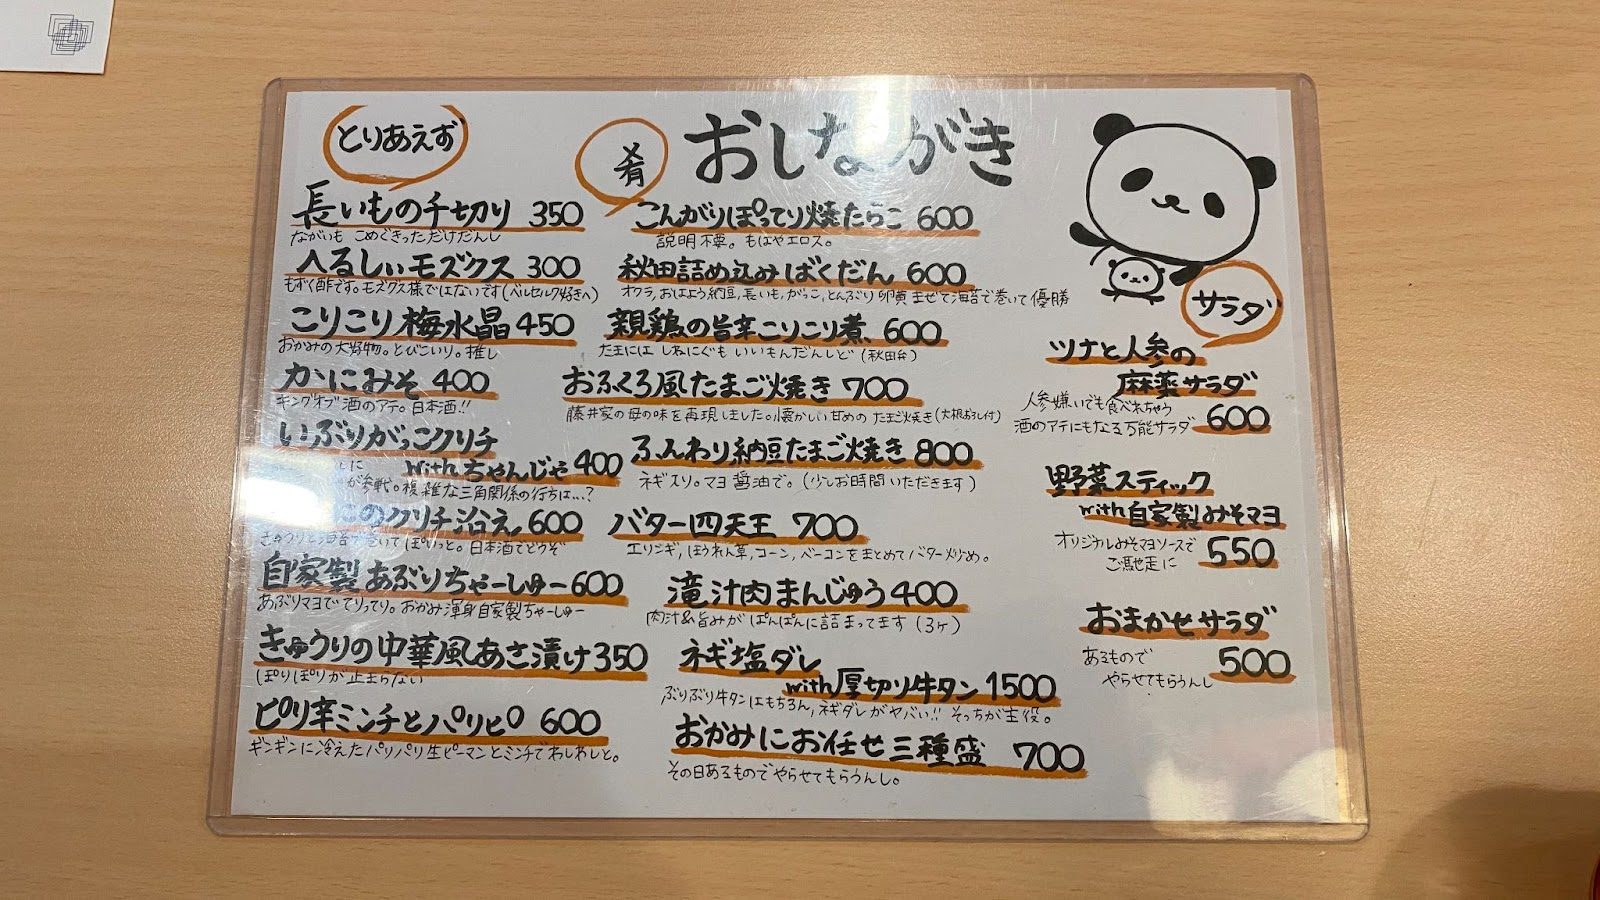 おしながき
とりあえず
長いもの千切り 350
ながいも こめごきっただけだんし
へるしぃモズクス 300
もずく酢です。モズクス様ではないです(ベルセルク好きへ)
こりこり梅水晶 450
おかみの大好物。とびこいり。推し
かにみそ 400
キングオブ酒のアテ。日本酒!!
いぶりがっこクリチ
withちゃんじゃ 400
に
が参戦。複雑な三角関係の行方は...?
にのクリチ沿え 600
きゅうりと海苔で巻いてぽいっと。日本酒でどうぞ
自家製あぶりちゃーしゅー 600
あぶりマヨでてりってり。おかみ渾身自家製ちゃーしゅー
きゅうりの中華風あさ漬け 350
ぽりぽりが止まらない
ピリ辛ミンチとパリピ 600
ギンギンに冷えたパリパリ生ピーマンとミンチでわしわしと。
肴
こんがりぽってり焼たらこ 600
説明不要。もはやエロス。
秋田詰め込みばくだん 600
オクラ,おはよう納豆,長いも,がっこ,とんぶり卵黄まぜて海苔で巻いて優勝
親鶏の旨辛こりこり煮 600
たまには しねにぐも いいもんだんしど(秋田弁)
おふくろ風たまご焼き 700
藤井家の母の味を再現しました。懐かしい甘めのたまご焼き(大根おろし付)
ふんわり納豆たまご焼き 800
ネギ入り。マヨ醤油で。(少しお時間いただきます)
バター四天王 700
エリンギ,ほうれん草,コーン,ベーコンをまとめてバター炒め。
滝汁肉まんじゅう 400
肉汁&旨みがぱんぱんに詰まってます(3ヶ)
ネギ塩ダレ
with厚切り牛タン 1500
ぶりぶり牛タンはもちろん,ネギダレがヤバい!! そっちが主役。
おかみにお任せ三種盛 700
その日あるものでやらせてもらうんし。
サラダ
ツナと人参の
麻薬サラダ
人参嫌いでも食べれちゃう
酒のアテにもなる万能サラダ 600
野菜スティック
with自家製みそマヨ
オリジナルみそマヨソースで
ご馳走に 550
おまかせサラダ
あるもので
やらせてもらうんし 500